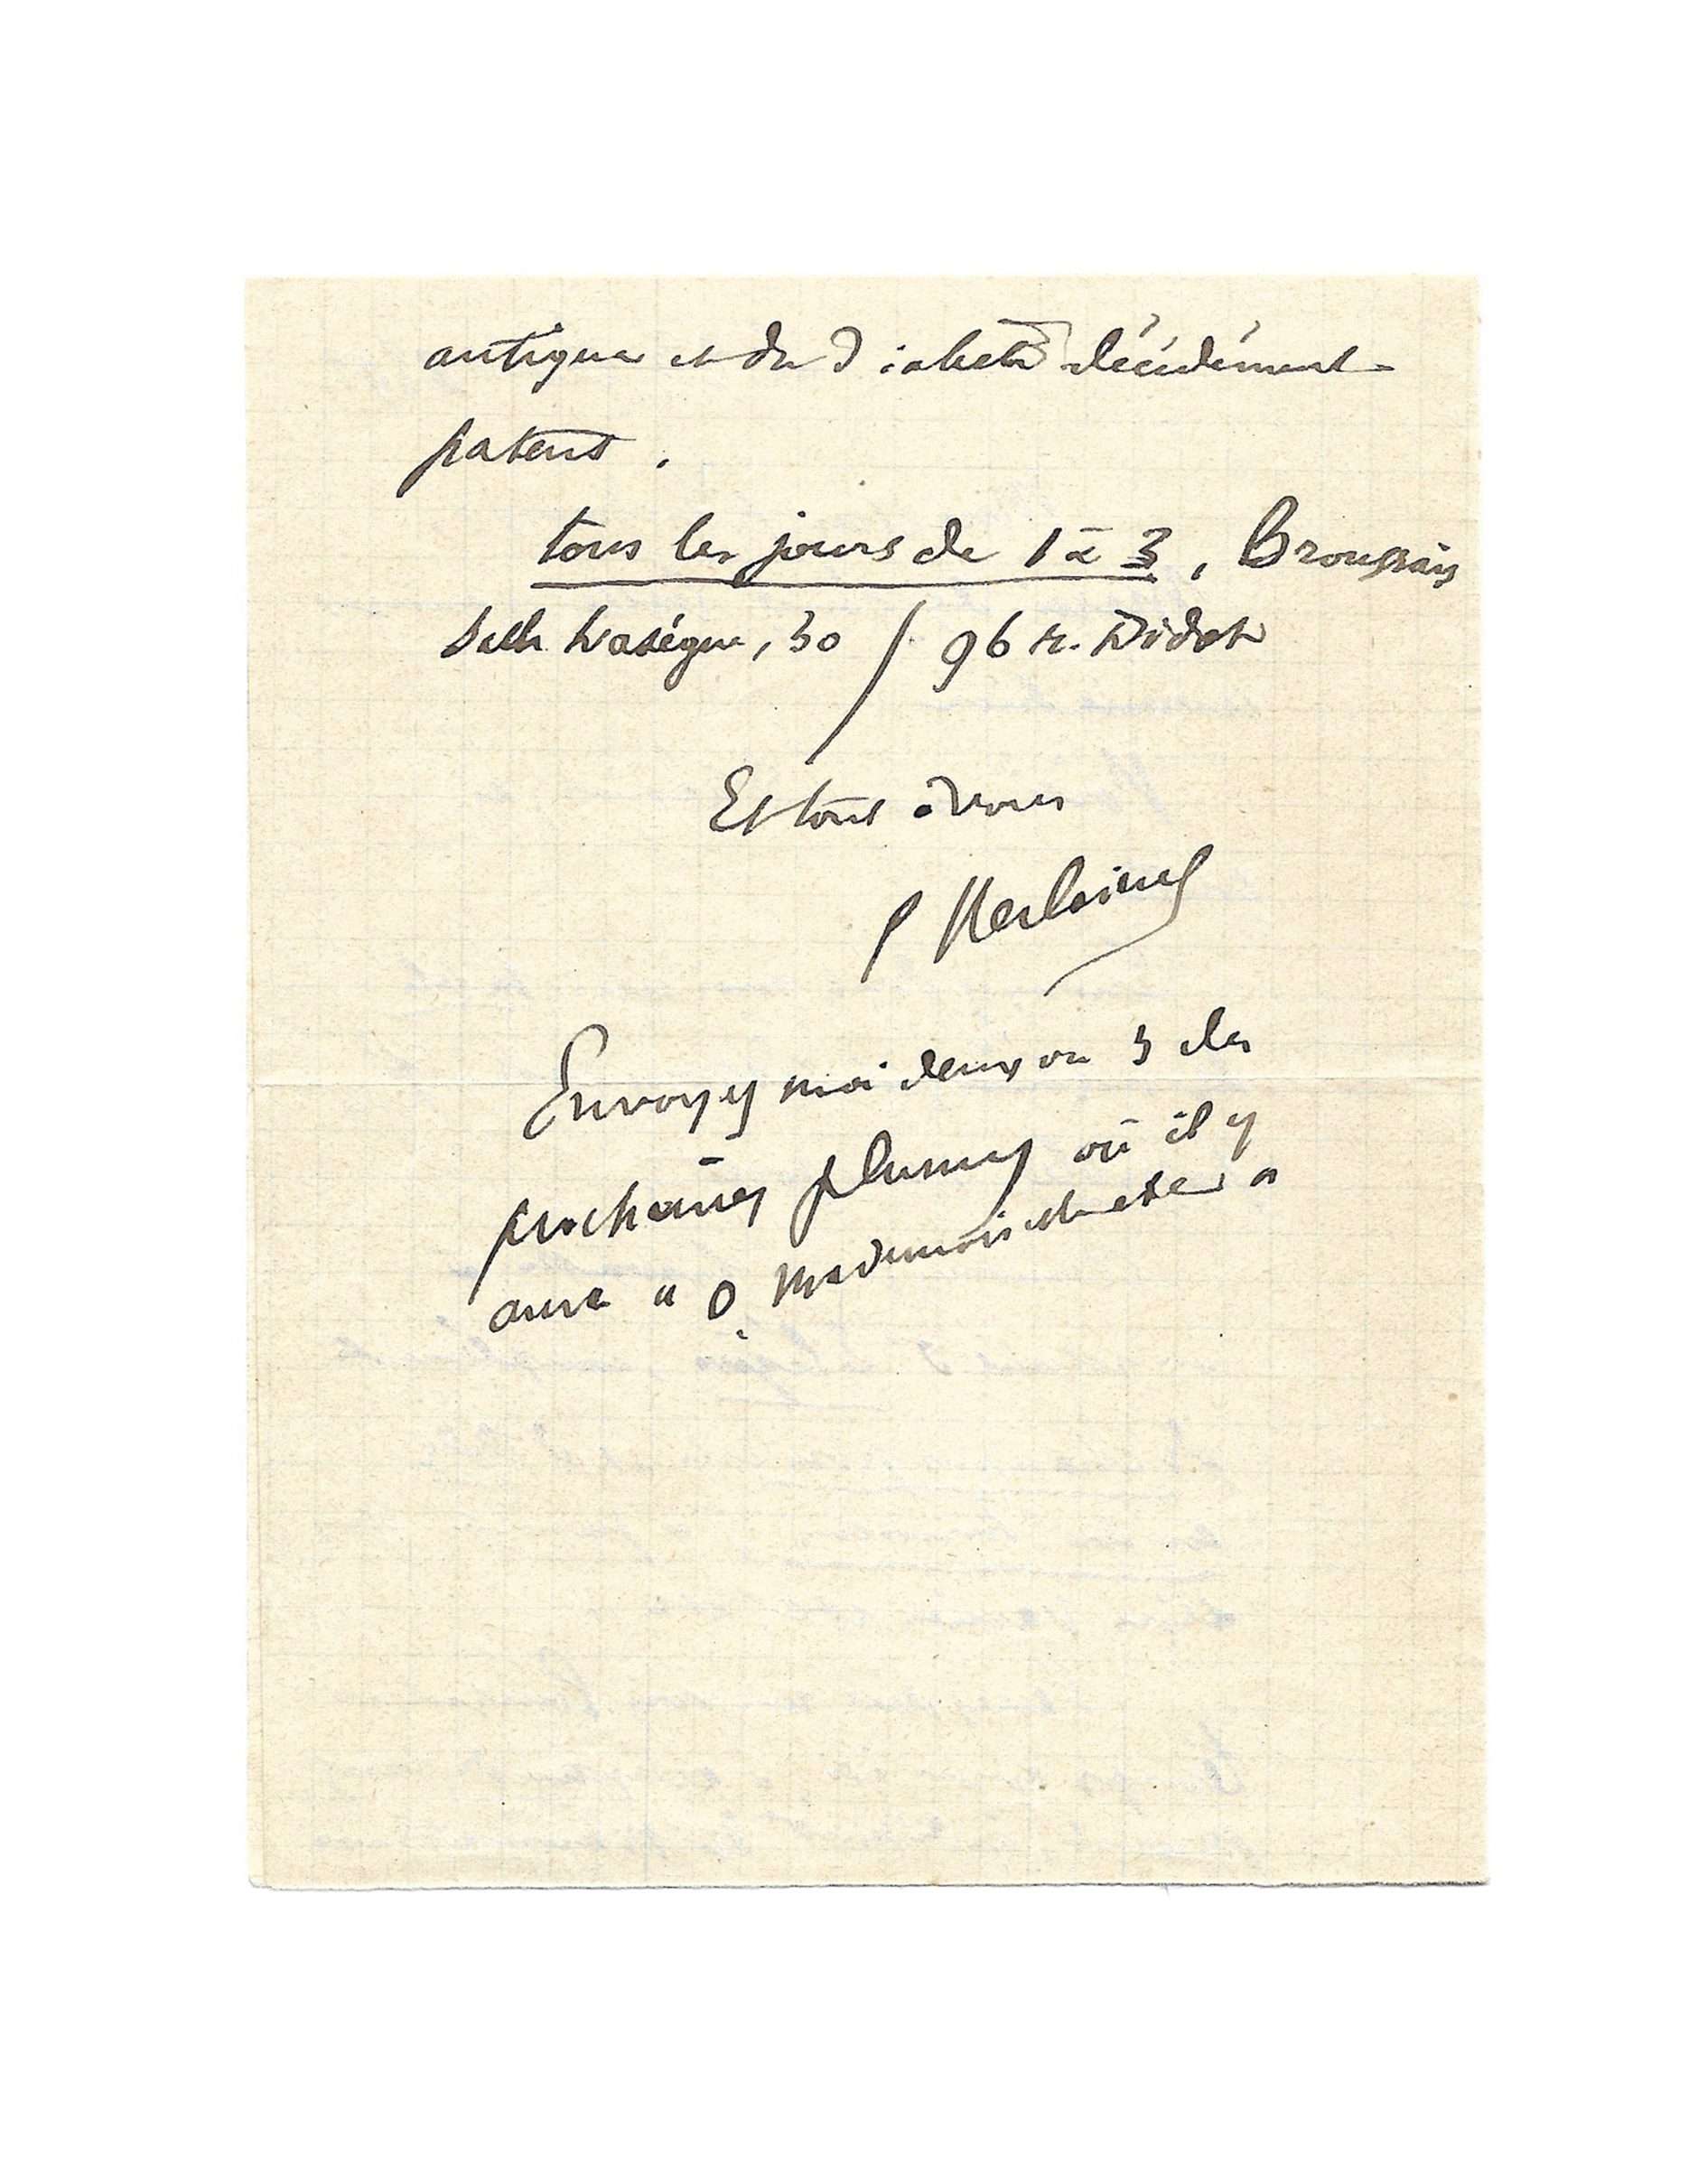 antique et du Diabète décidément
patent.
tous les jours de 1 à 3, Broussais
Salle Lasègue, 30 / 96 r. Didot
Et tout à vous
P Verlaine
Envoyez moi deux ou 3 des
prochaines plumes où il y
aura "